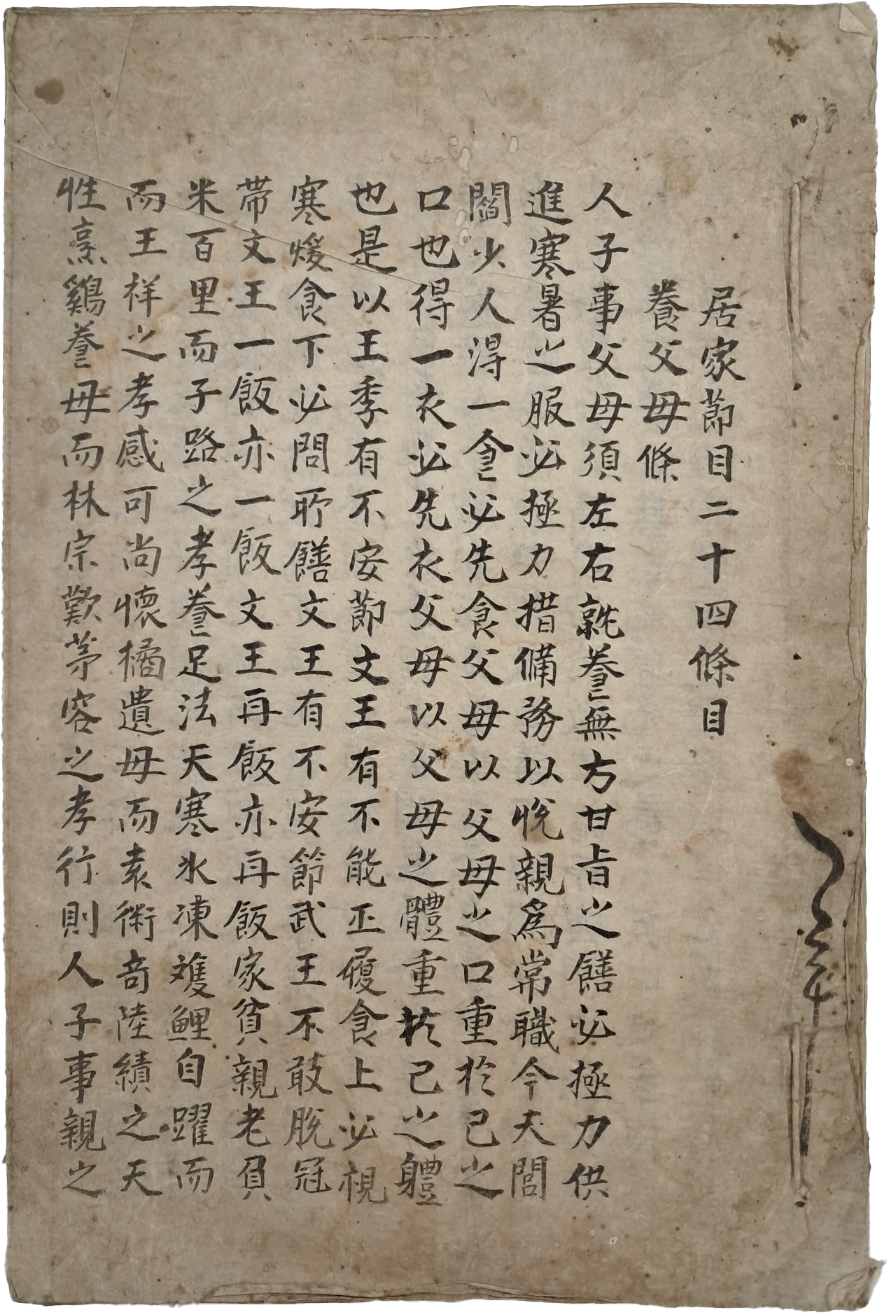 居家節目二十四條目
養父母條
人子事父母須左右就養無方甘旨之饍必極力供
進寒暑之服必極力措備務以悅親爲常職今夫閭
閻少人得一食必先食父母以父母之口重於己之
口也得一衣必先衣父母以父母之體重於己之軆
也是以王季有不安節文王有不能正履食上必視
寒煖食下必問所饍文王有不安節武王不敢脫冠
帶文王一飯亦一飯文王再飯亦再飯家貧親老負
米百里而子路之孝養足法天寒氷凍雙鯉自躍而
而王祥之孝感可尚懷橘遺母而袁術奇陸績之天
性烹鷄養母而林宗歎茅容之孝行則人子事親之